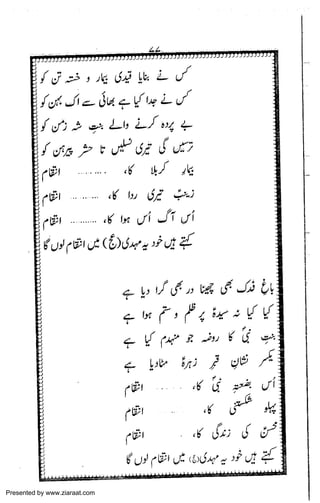 ۷۷
کس نے بنایا قیدی بیمار و خستہ تن کو
کس نے جدا کیا ہے بھائی سے اک بہن کو
بے پردہ کرنے والے بنتِ شہ زمن کو
ترسیں گی تیری نسلیں تا حشر پیرہن کو
بیمارِ کربلا کا، .......... انتقام
زینبؑ تیری ردا کا، .......... انتقام
اُس آگ اُس ہوا کا، .......... انتقام
کہتے ہیں خود یہ مہدی(عج) میں انتقام لوں گا
باغِ فدک بھی چھینا در بھی گرا دیا ہے
کیا کیا نہ سیدہؑ پر ظلم و ستم ہوا ہے
بنتِ نبیؐ کا روضہ جو منہدم کیا ہے
یکسر نشانِ قبرِ زہرہؑ مٹادیا ہے
اُس بضعتہِ نبیؐ کا، ........ انتقام
پہلو شکستگی کا، ........ انتقام
محسنؑ کی زندگی کا، . انتقام
کہتے ہیں خود یہ مہدی(عج) میں انتقام لوں گا
Presented by www.ziaraat.com